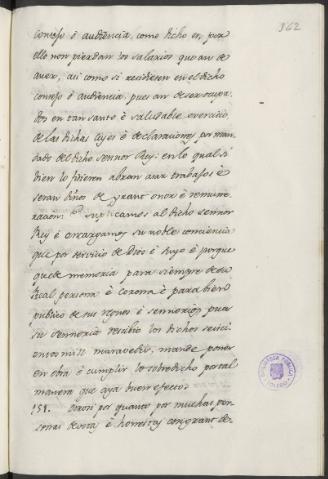 362
Consejo é audiencia, como dicho es, por
ello non pierdan los salarios que an de
aver, asi como si residiesen en el dicho
consejo é audiencia, pues an de ser ocupa
dos en tan santo é saludable exercicio,
de las dichas leyes é declaraciones, por man
dado del dicho sennor Rey: en lo qual si
bien lo ficieren abran aun trabajos é
seran dinos de grant onor é remune
racion: suplicamos al dicho sennor
Rey é encargamos su noble conciencia
que por servicio de Dios é suyo é porque
quede memoria para siempre de su
Real persona é corona é para bien
publico de sus regnos é sennorios, pues
su sennoria recibio los dichos
mill maravedis, mande poner
en obra é cumplir lo sobredicho por tal
manera que aya buen efecto.
151. por quanto por muchas per
sonas devotas é honestas con grant de-